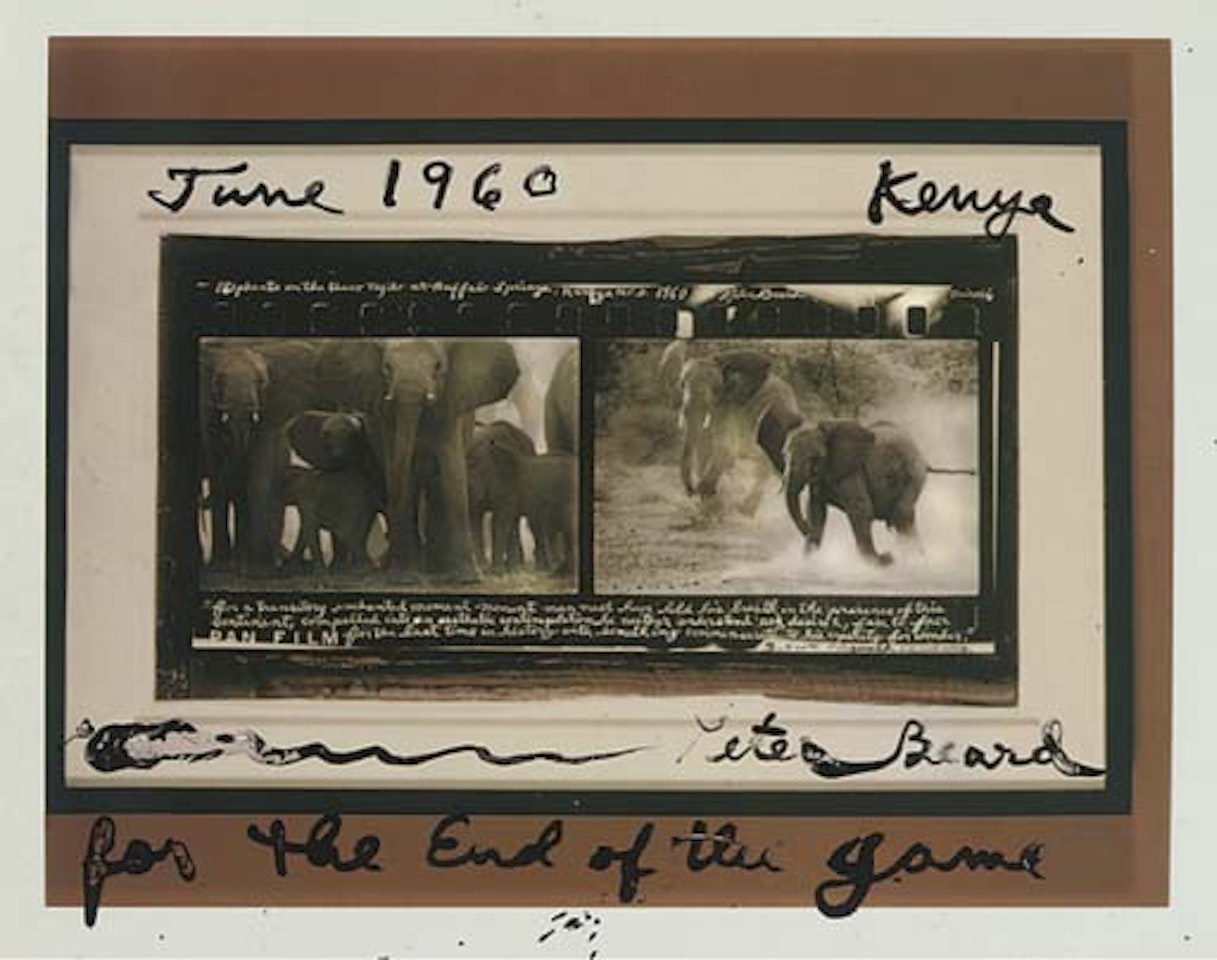 June 1960
Kenya
Elephants on the Uaso Nyiro at Buffalo Springs, Kenya 1960 Peter Beard
"For a transitory enchanted moment man must have held his breath in the presence of this
continent, compelled into an aesthetic contemplation he neither understood nor desired, face to face
for the last time in history with something commensurate to his capacity for wonder."
PAN FILM
Peter Beard
for the End of the game